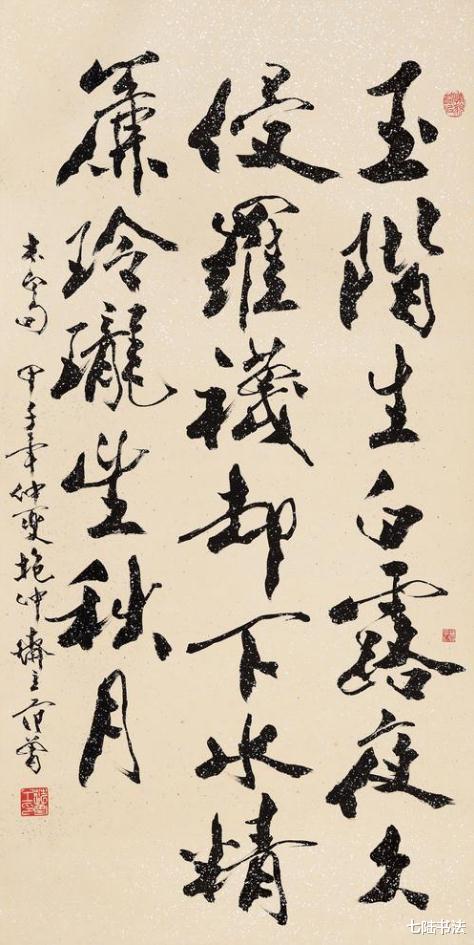 玉階生白露夜久
侵羅襪却下水精
簾玲瓏望秋月
甲子年仲夏抱冲齋主范曾
七陆书法